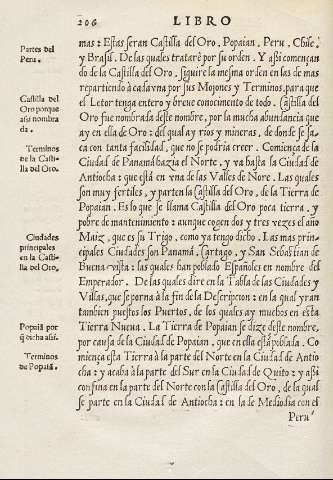 206 LIBRO
Partes del
Peru.
Castilla del
Oro porque
asi nombra
da.
Terminos
de la Casti-
lla del Oro.
Ciudades
principales
en la Casti-
lla del Oro.
Popaiã por
q̃ dicha asi.
Terminos
de Popaiã.
mas: Estas seran Castilla del Oro, Popaian, Peru, Chile,
y Brasil. De las quales tratarè por su orden. Y asi començan
do de la Castilla del Oro, seguire la mesma orden en las de mas
repartiendo à cada vna por sus Mojones y Terminos, para que
el Letor tenga entero y breve conocimento de todo. Castilla del
Oro fue nombrada deste nombre, por la mucha abundancia que
ay en ella de Oro: del qual ay rios y mineras, de donde se sa-
ca con tanta facilidad, que no se podria creer. Comença de la
Ciudad de Panamà hazia el Norte, y va hasta la Ciudad de
Antiocha: que està en vna de las Valles de Nore. Las quales
son muy fertiles, y parten la Castilla del Oro, de la Tierra de
Popaian. Es lo que se llama Castilla del Oro poca tierra, y
pobre de mantenimiento: aunque cogen dos y tres vezes el año
Maiz, que es su Trigo, como ya tengo dicho. Las mas prin-
cipales Ciudades son Panamà, Cartago, y San Sebastian de
Buena vista: las quales han poblado Españoles en nombre del
Emperador. De las quales dire en la Tabla de las Ciudades y
Villas, que se porna à la fin de la Descripcion: en la qual yran
tambien puestos los Puertos, de los quales ay muchos en esta
Tierra Nueva. La Tierra de Popaian se dize deste nombre,
por causa de la Ciudad de Popaian, que en ella està poblada. Co
miença esta Tierra à la parte del Norte en la Ciudad de Antio-
cha: y acaba à la parte del Sur en la Ciudad de Quito: y asi
confina en la parte del Norte con la Castilla del Oro, de la qual
se parte en la Ciudad de Antiocha: en la de Mediodia con el
Peru